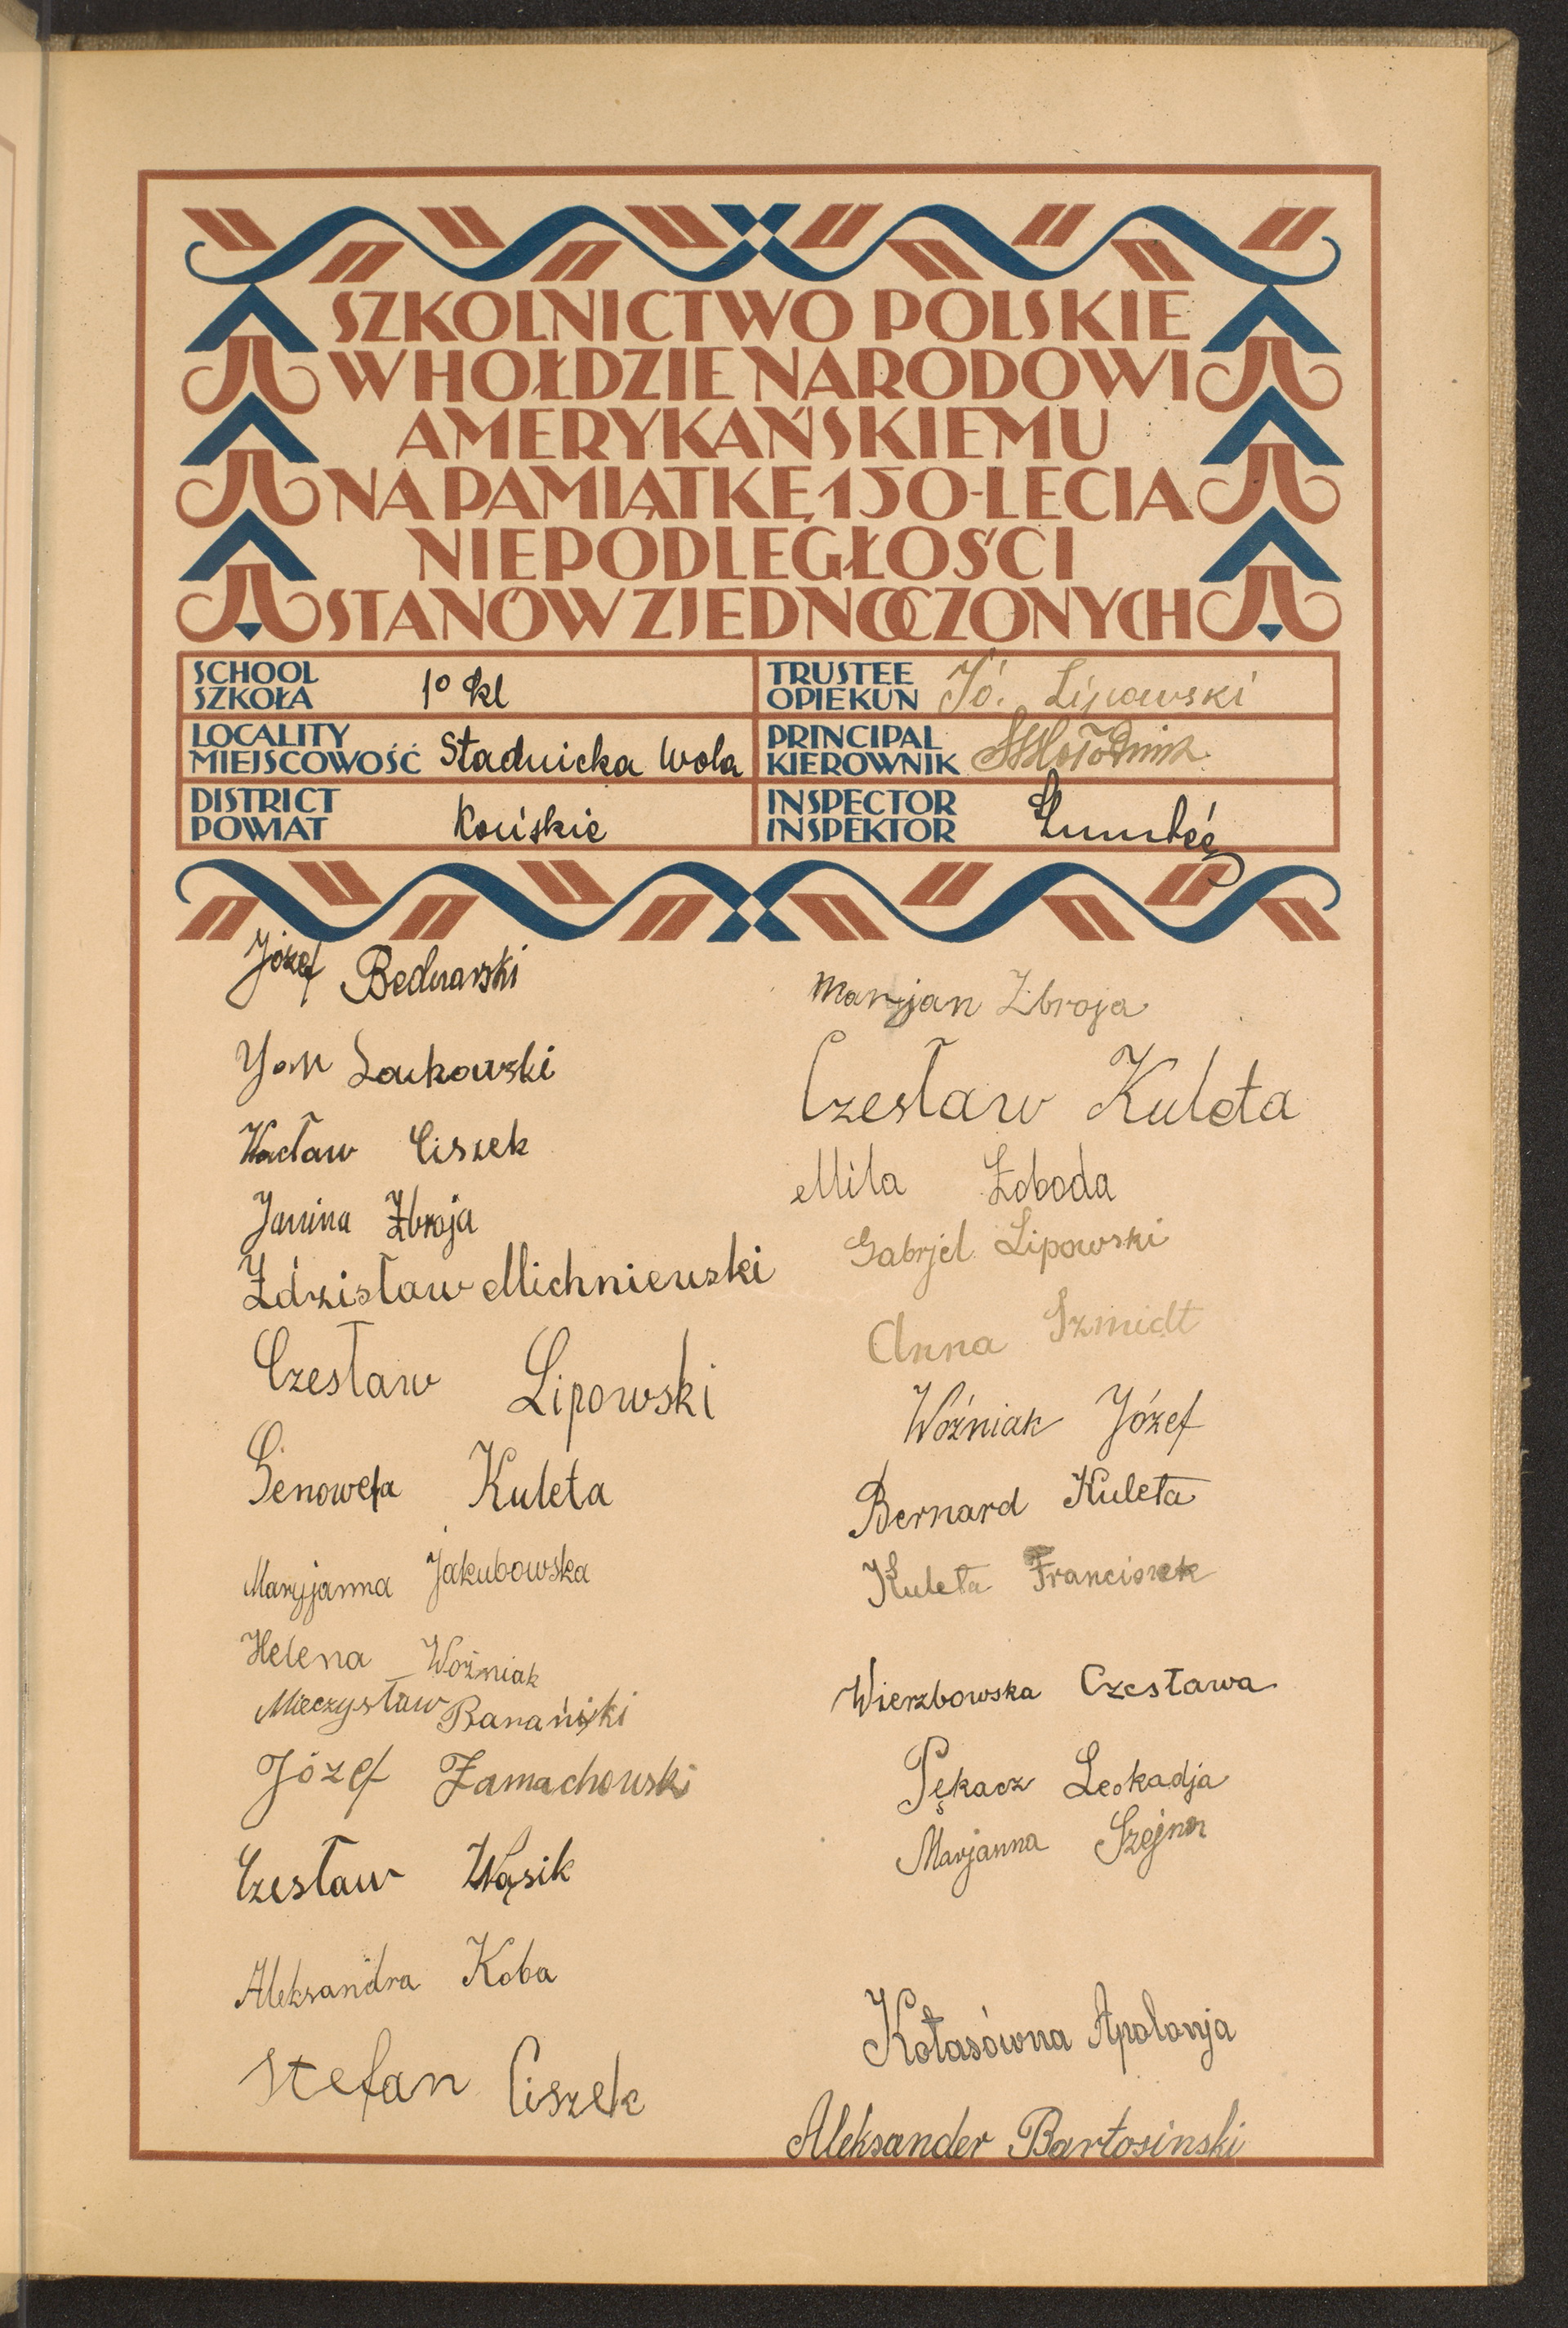 SZKOLNICTWO POLSKIE
W HOŁDZIE NARODOWI
AMERYKAŃSKIEMU
NA PAMIĄTKĘ 150-LECIA
NIEPODLEGŁOŚCI
STANÓW ZJEDNOCZONYCH
SCHOOL
SZKOŁA
1º kl
TRUSTEE
OPIEKUN
Jó. Lipowski
LOCALITY
MIEJSCOWOŚĆ
Stadnicka Wola
PRINCIPAL
KIEROWNIK
DISTRICT
POWIAT
Końskie
INSPECTOR
INSPEKTOR
Józef Bednarski
Jan Laskowski
Wacław Ciszek
Janina Zbroja
Zdzisław Michniewski
Czesław Lipowski
Genowefa Kuleta
Maryjanna Jakubowska
Helena Woźniak
Mieczysław Barański
Józef Zamachowski
Czesław Wąsik
Aleksandra Koba
Stefan Ciszek
Maryjan Zbroja
Czesław Kuleta
Mila Łoboda
Gabrjel Lipowski
Anna Szmidt
Woźniak Józef
Bernard Kuleta
Kuleta Franciszek
Wierzbowska Czesława
Pękacz Leokadja
Marjanna Szejna
Kołasówna Apolonja
Aleksander Bartosinski